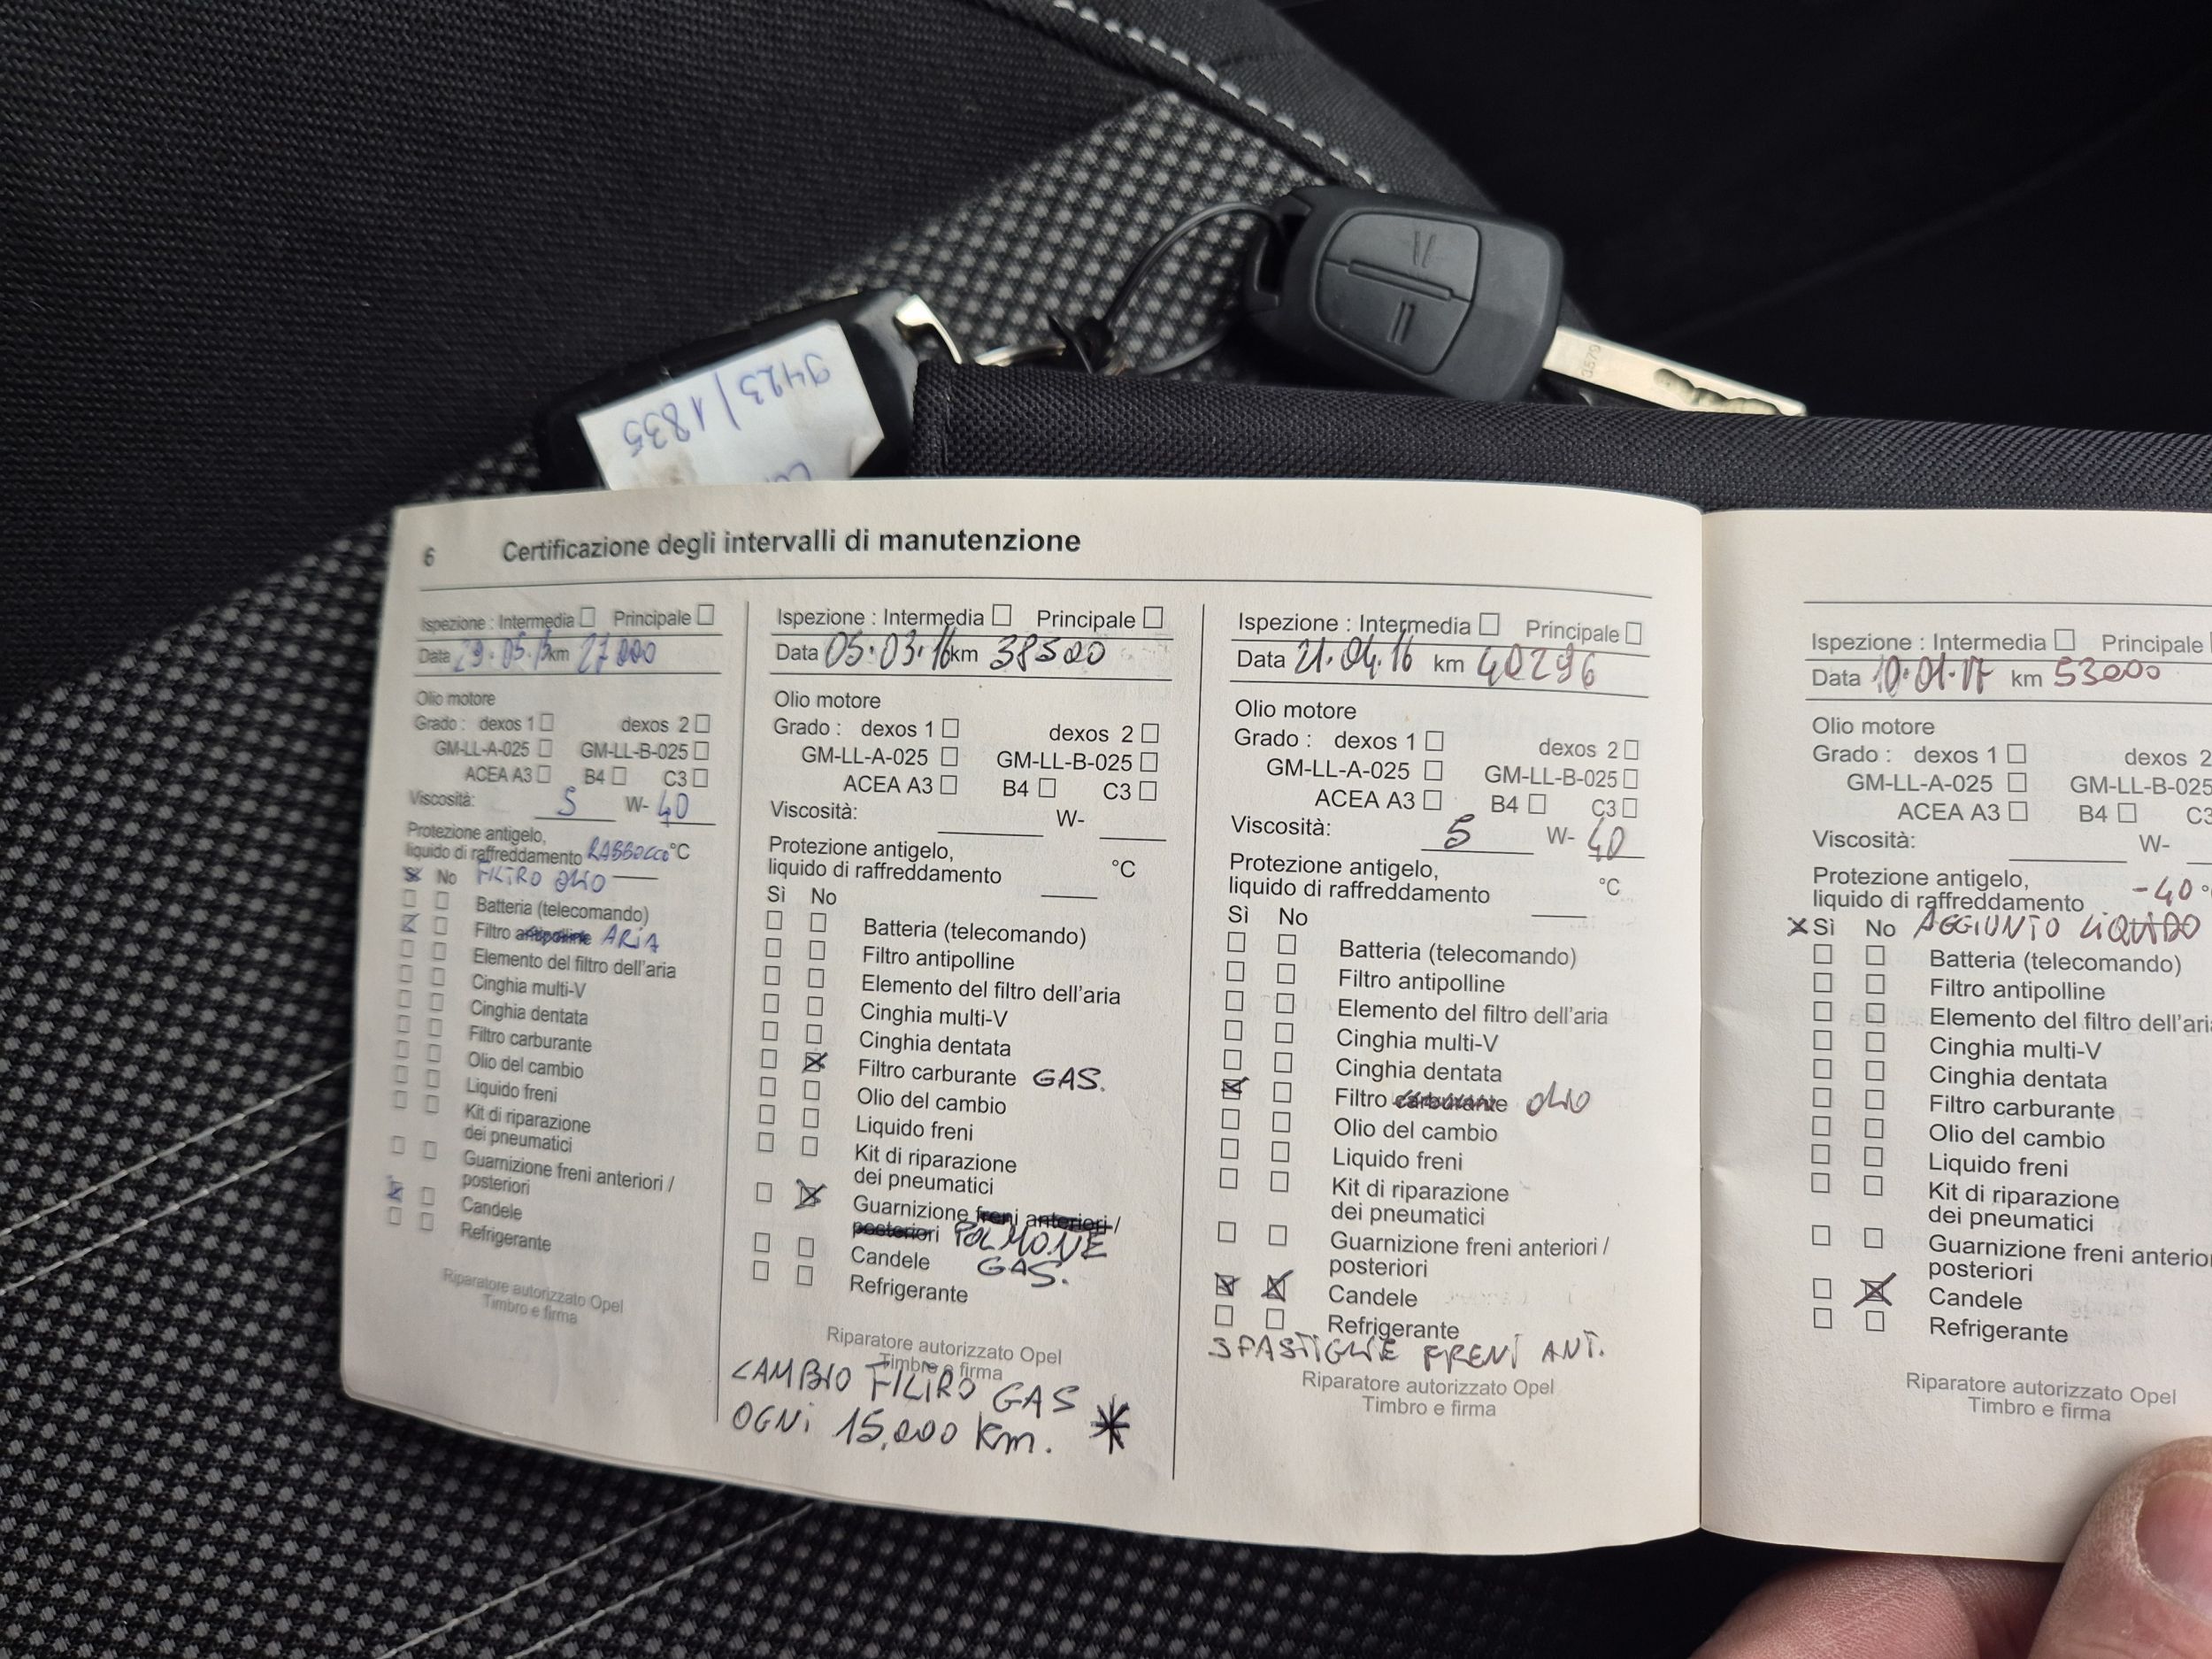 9423/1835
6 Certificazione degli intervalli di manutenzione
Ispezione : Intermedia Principale
Data 29.05.15 km 27000
Olio motore
Grado : dexos 1 dexos 2
GM-LL-A-025 GM-LL-B-025
ACEA A3 B4 C3
Viscosità: 5 W- 40
Protezione antigelo,
liquido di raffreddamento RABBOCCO °C
Sì No FILTRO OLIO
Batteria (telecomando)
Filtro antipolline ARIA
Elemento del filtro dell'aria
Cinghia multi-V
Cinghia dentata
Filtro carburante
Olio del cambio
Liquido freni
Kit di riparazione
dei pneumatici
Guarnizione freni anteriori /
posteriori
Candele
Refrigerante
Riparatore autorizzato Opel
Timbro e firma
Ispezione : Intermedia Principale
Data 05.03.16 km 38500
Olio motore
Grado : dexos 1 dexos 2
GM-LL-A-025 GM-LL-B-025
ACEA A3 B4 C3
Viscosità: W-
Protezione antigelo,
liquido di raffreddamento °C
Sì No
Batteria (telecomando)
Filtro antipolline
Elemento del filtro dell'aria
Cinghia multi-V
Cinghia dentata
Filtro carburante GAS.
Olio del cambio
Liquido freni
Kit di riparazione
dei pneumatici
Guarnizione freni anteriori /
posteriori POLMONE
Candele GAS.
Refrigerante
Riparatore autorizzato Opel
Timbro e firma
CAMBIO FILTRO GAS
OGNI 15.000 Km. *
Ispezione : Intermedia Principale
Data 21.04.16 km 40296
Olio motore
Grado : dexos 1 dexos 2
GM-LL-A-025 GM-LL-B-025
ACEA A3 B4 C3
Viscosità: 5 W- 40
Protezione antigelo,
liquido di raffreddamento °C
Sì No
Batteria (telecomando)
Filtro antipolline
Elemento del filtro dell'aria
Cinghia multi-V
Cinghia dentata
Filtro carburante OLIO
Olio del cambio
Liquido freni
Kit di riparazione
dei pneumatici
Guarnizione freni anteriori /
posteriori
Candele
Refrigerante
PASTIGLIE FRENI ANT.
Riparatore autorizzato Opel
Timbro e firma
Ispezione : Intermedia Principale
Data 10.01.17 km 53000
Olio motore
Grado : dexos 1 dexos 2
GM-LL-A-025 GM-LL-B-025
ACEA A3 B4 C3
Viscosità: W-
Protezione antigelo,
liquido di raffreddamento -40 °
Sì No AGGIUNTO LIQUIDO
Batteria (telecomando)
Filtro antipolline
Elemento del filtro dell'ari
Cinghia multi-V
Cinghia dentata
Filtro carburante
Olio del cambio
Liquido freni
Kit di riparazione
dei pneumatici
Guarnizione freni anterior
posteriori
Candele
Refrigerante
Riparatore autorizzato Opel
Timbro e firma